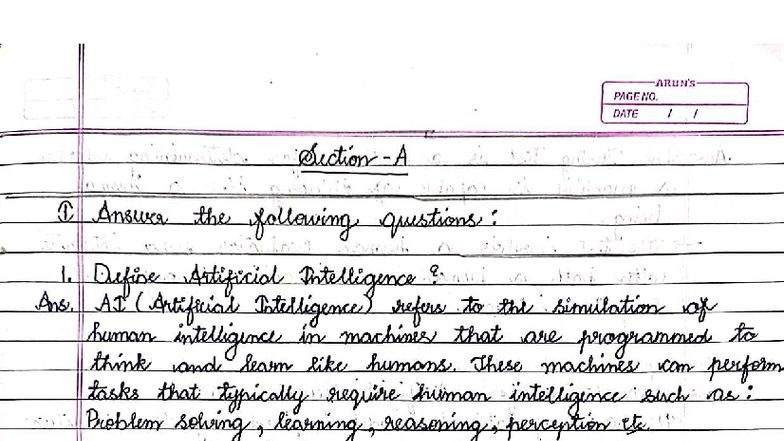 ARUN'S
PAGE NO.
DATE / /
Section - A
① Answer the following questions:
1. Define Artificial Intelligence ?
Ans. AI (Artificial Intelligence) refers to the simulation of
human intelligence in machines that are programmed to
think and learn like humans. These machines can perform
tasks that typically require human intelligence such as:
Problem solving, learning, reasoning, perception etc.